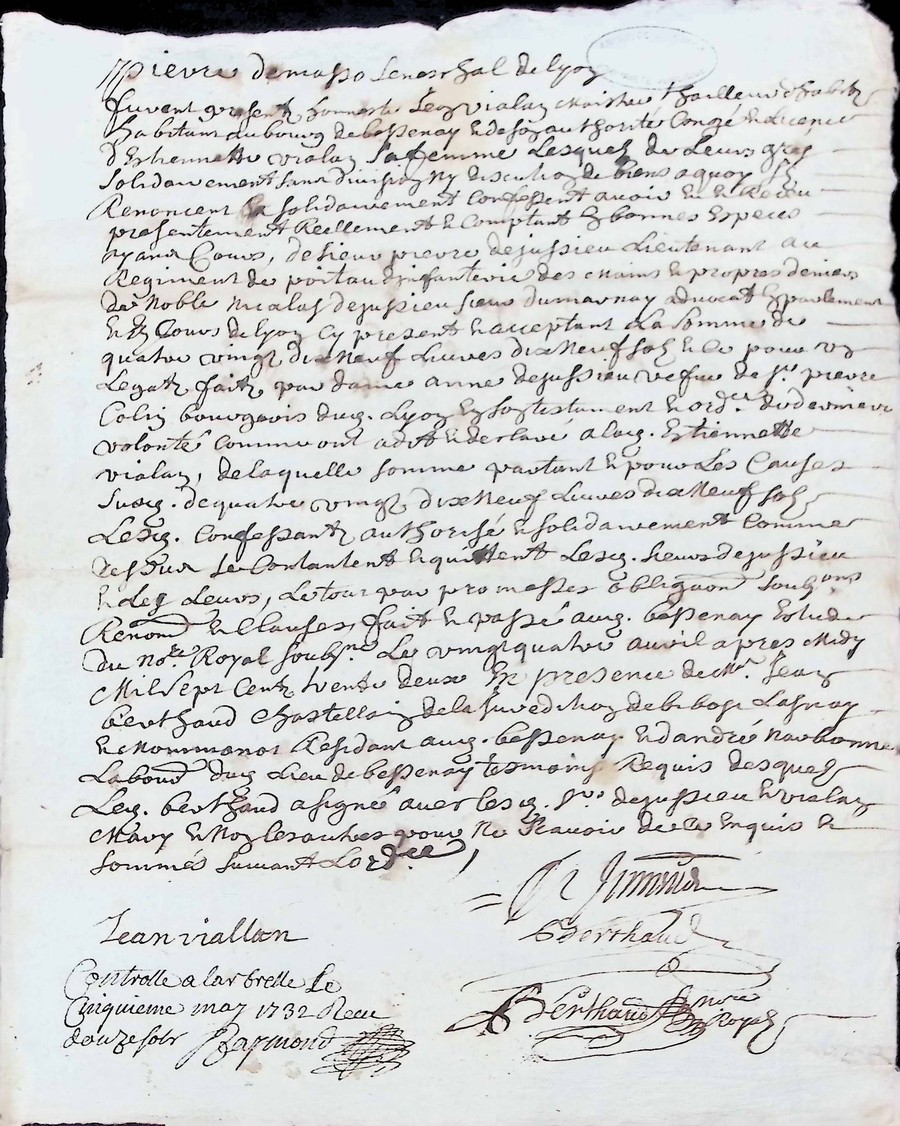 Pierre demasso Seneschal de lyon
furent presentz honneste Jean vialan Maistre thailleur d'habitz
habitant au bourg de bessenay & de son authorité Congé & Licence
d'Estiennette vialan Sa femme Lesquels de Leurs grés
Solidairement sans division ny discution de biens a quoy Ils
Renoncent & solidairement Confessent avoir eu & Receu
presentement Reellement & Comptant En bonnes Especes
ayans Cours, de sieur pierre dejussieu Lieutenant au
Regiment de poitau d'infanterie des mains & propres deniers
de Noble Nicolas dejussieu sieur dumarnay advocat En parlement
& ez Cours de Lyon Cy present & acceptant La somme de
quatre vingt dix Neuf Livres dix Neuf solz & Ce pour un
Legatz faitz par dame anne dejussieu vefve de Sr. pierre
Colin bourgeois dud. Lyon En son testament & ord.ce de derniere
volonté Comme ont advoué & declaré a lad. Estiennette
vialan, de laquelle somme partant & pour Les Causes
Susd. de quatre vingt dix Neuf Livres dix Neuf solz
Lesd. Confessantz authorisé & solidairement Comme
dessus se Contantent & quittent Lesd. sieurs dejussieu
& Les Leurs, Le tout par promesses obligaon soub.ons
Renom.on & Clauses, fait & passé aud. bessenay Estude
du No.re Royal soub.né Le vingt quatre avril apres Midy
Mil sept Centz trente deux En presence de M.e Jean
berthaud Chastellain de la Juredition de bibost Lasnay
& Nommanot Residant aud. bessenay & d'andré Narbonne
Labour dud. Lieu de bessenay tesmoins Requis desquels
Led. berthaud a signé avec lesd. Srs dejussieu & vialan
Mary & Non les autres pour Ne sçavoir de Ce Enquis &
sommés suivant Lord.ce
Jean viallon
Berthaud
Controlle a larbrelle Le
Cinquieme may 1732 Receu
douze solz Raymond
Berthaud nore
Royal